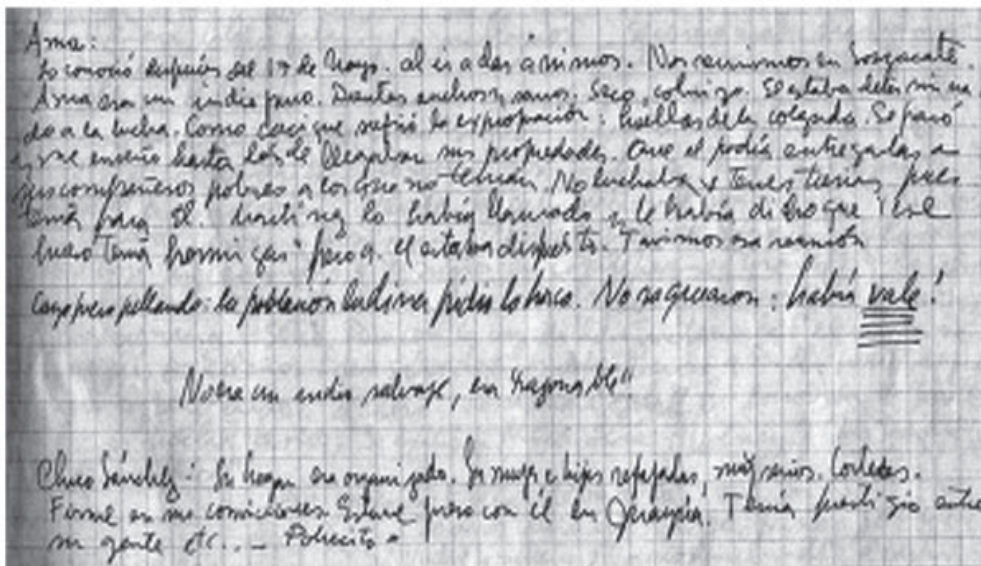 Ama:
Lo conocí después del 1º de Mayo. al ir a dar ánimos. Nos reunimos en Sonzacate.
Ama era un indio puro. Dientes anchos y sanos. Seco, cobrizo. Se estaba
do a la lucha. Como cacique sufrió la expropiación: huellas de la colgada. Se paró
y me enseñó hasta los de sus propiedades. Que él podía entregarlas a
sus compañeros pobres a los que no tenían. No luchaba tierras, pues
tenía para él. lo había llamado y le había dicho que "ese
hueso tenía hormigas" pero q. él estaba dispuesto. Tuvimos esa reunión
la población ladina lo hizo. No saquearon: había vale!
No era un indio salvaje, era "razonable".
Chico Sánchez: Su hogar era organizado. Su mujer e hijas refajadas, muy serios. Corteses.
Firme en sus convicciones. Estuve preso con él en Juayúa. Tenía prestigio entre
su gente etc... – Pobrecito.